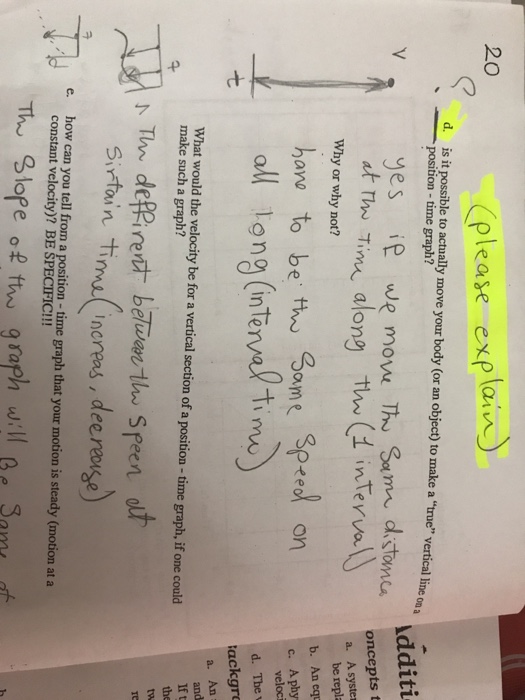 20
(please explain)
d. is it possible to actually move your body (or an object) to make a "true" vertical line on a
position - time graph?
yes if we move the Sam distance
at the Time along the (1 interval)
Why or why not?
V
t
have to be the Same Speed on
all long (interval time)
What would the velocity be for a vertical section of a position - time graph, if one could
make such a graph?
The deffirent between the speen at
Sirtain time (increas, deecrease)
e. how can you tell from a position - time graph that your motion is steady (motion at a
constant velocity)? BE SPECIFIC!!!
The Slope of the graph will Be Same at
Additi
oncepts
a. A syste
be repl
b. An equ
c. A phy
veloci
d. The v
ackgro
a. An
and
If t
the
tw